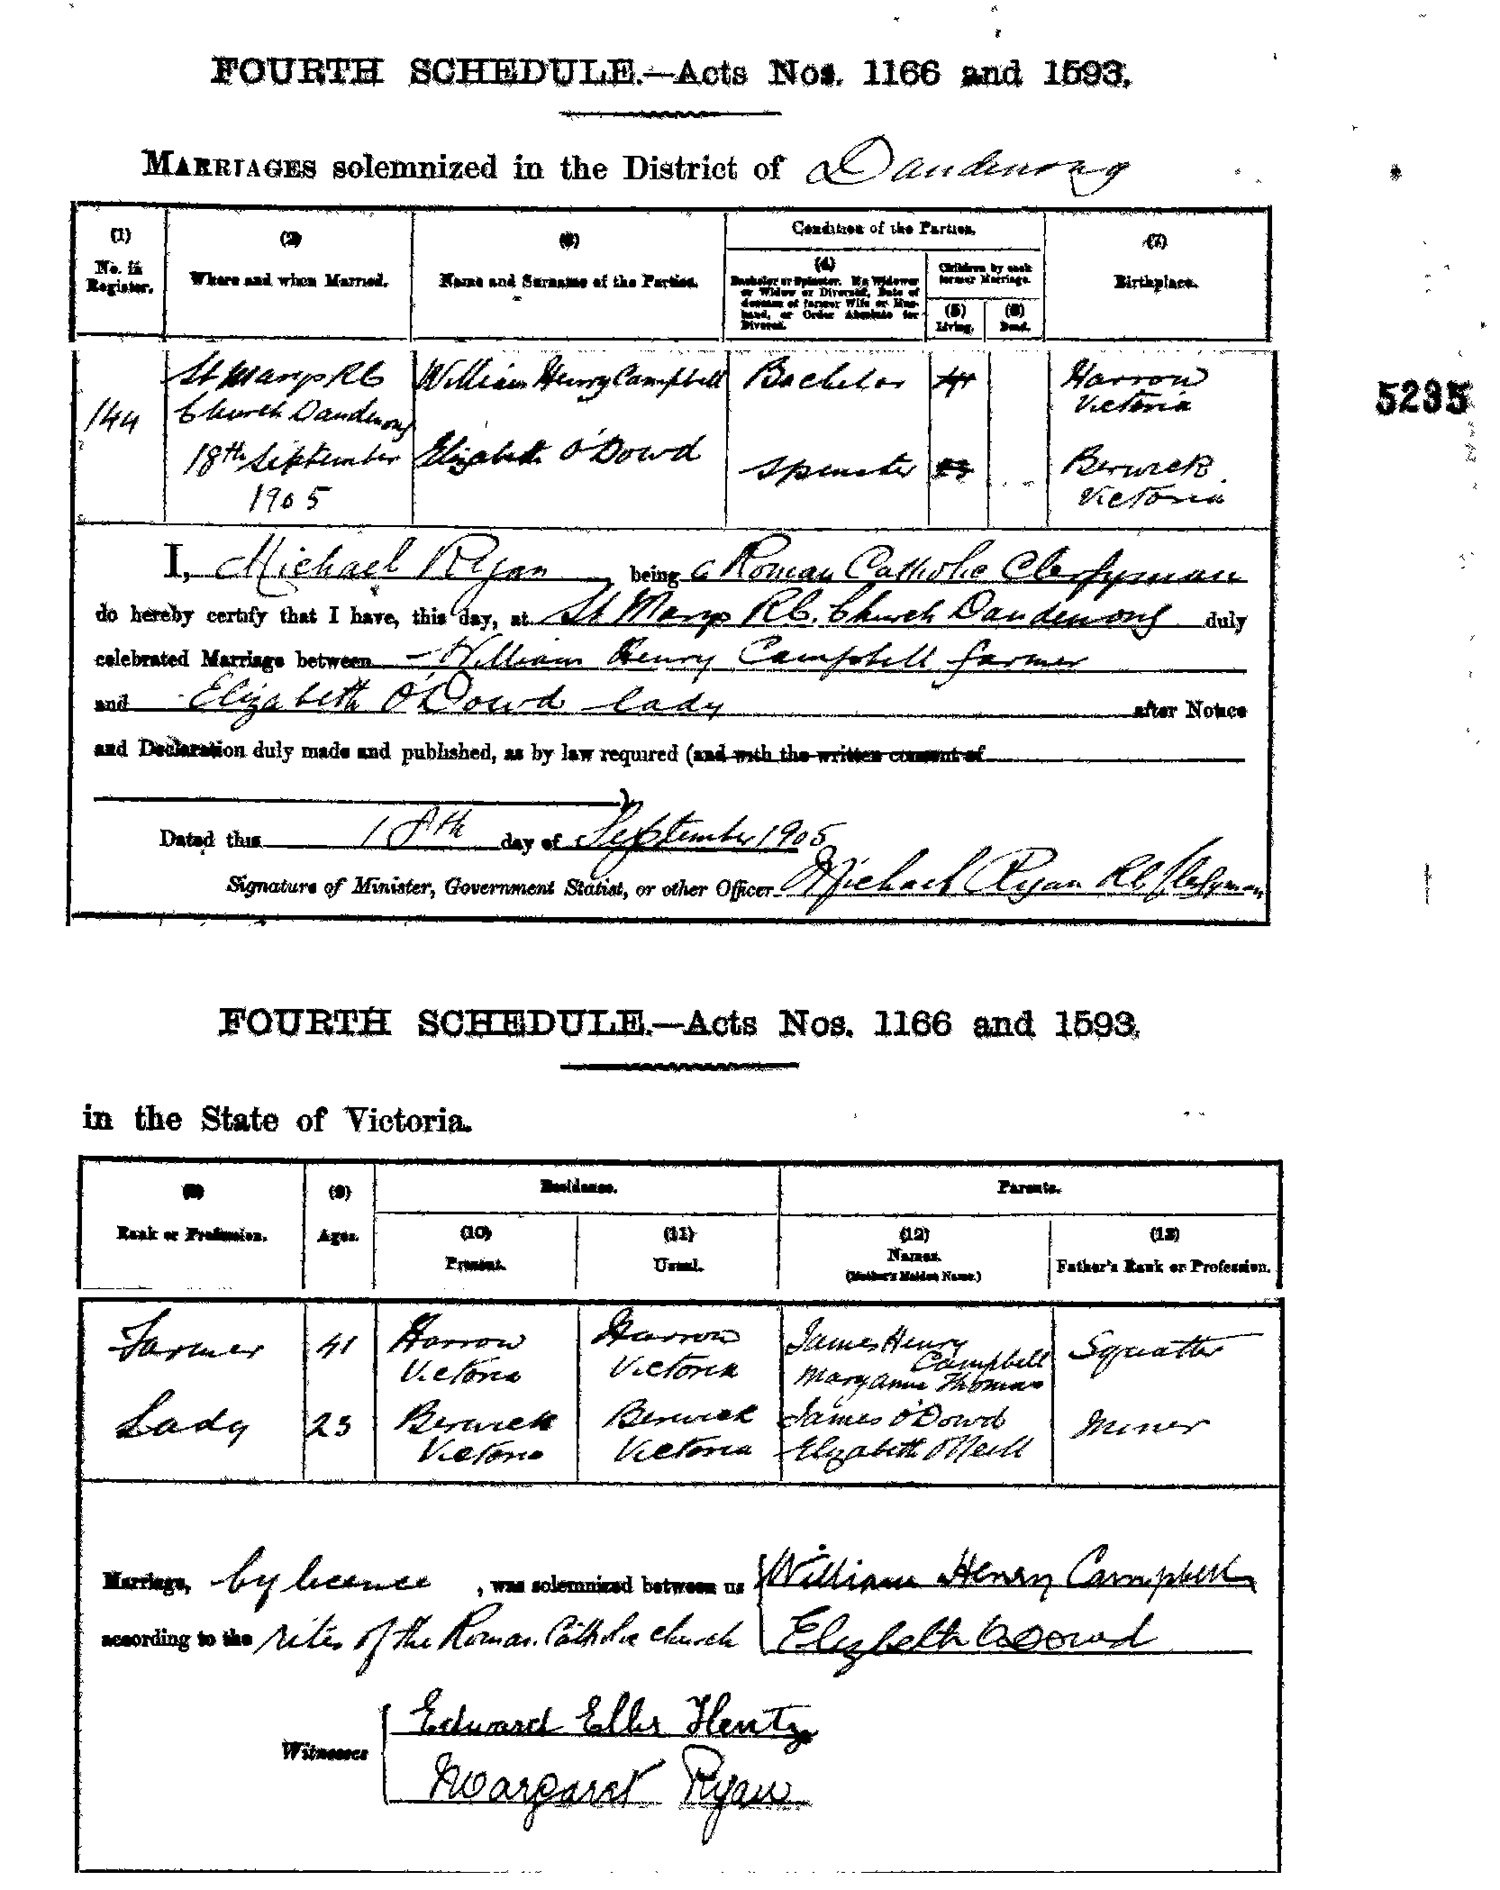 FOURTH SCHEDULE.—Acts Nos. 1166 and 1593.
MARRIAGES solemnized in the District of Dandenong
(1)
No. in
Register.
(2)
Where and when Married.
(3)
Name and Surname of the Parties.
Condition of the Parties.
(4)
Bachelor or Spinster. If a Widower
or Widow or Divorced, Date of
decease of former Wife or Hus-
band, or Order Absolute for
Divorce.
Children by each
former Marriage.
(5)
Living.
(6)
Dead.
(7)
Birthplace.
144
St Marys RC
Church Dandenong
18th September
1905
William Henry Campbell
Elizabeth O'Dowd
Bachelor
Spinster
Harrow
Victoria
Berwick
Victoria
5235
I, Michael Ryan being a Roman Catholic Clergyman
do hereby certify that I have, this day, at St Marys RC. Church Dandenong duly
celebrated Marriage between William Henry Campbell farmer
and Elizabeth O'Dowd lady after Notice
and Declaration duly made and published, as by law required (and with the written consent of
)
Dated this 18th day of September 1905
Signature of Minister, Government Statist, or other Officer Michael Ryan RC Clergyman
FOURTH SCHEDULE.—Acts Nos. 1166 and 1593.
in the State of Victoria.
(8)
Rank or Profession.
(9)
Ages.
Residence.
(10)
Present.
(11)
Usual.
Parents.
(12)
Names.
(Mother's Maiden Name.)
(13)
Father's Rank or Profession.
Farmer
41
Harrow
Victoria
Harrow
Victoria
James Henry
Campbell
Mary Anne Thomas
Squatter
Lady
23
Berwick
Victoria
Berwick
Victoria
James O'Dowd
Elizabeth O'Neill
Miner
Marriage, by licence, was solemnized between us William Henry Campbell
according to the rites of the Roman Catholic church Elizabeth O'Dowd
Witnesses
Edward Ellis Henty
Margaret Ryan